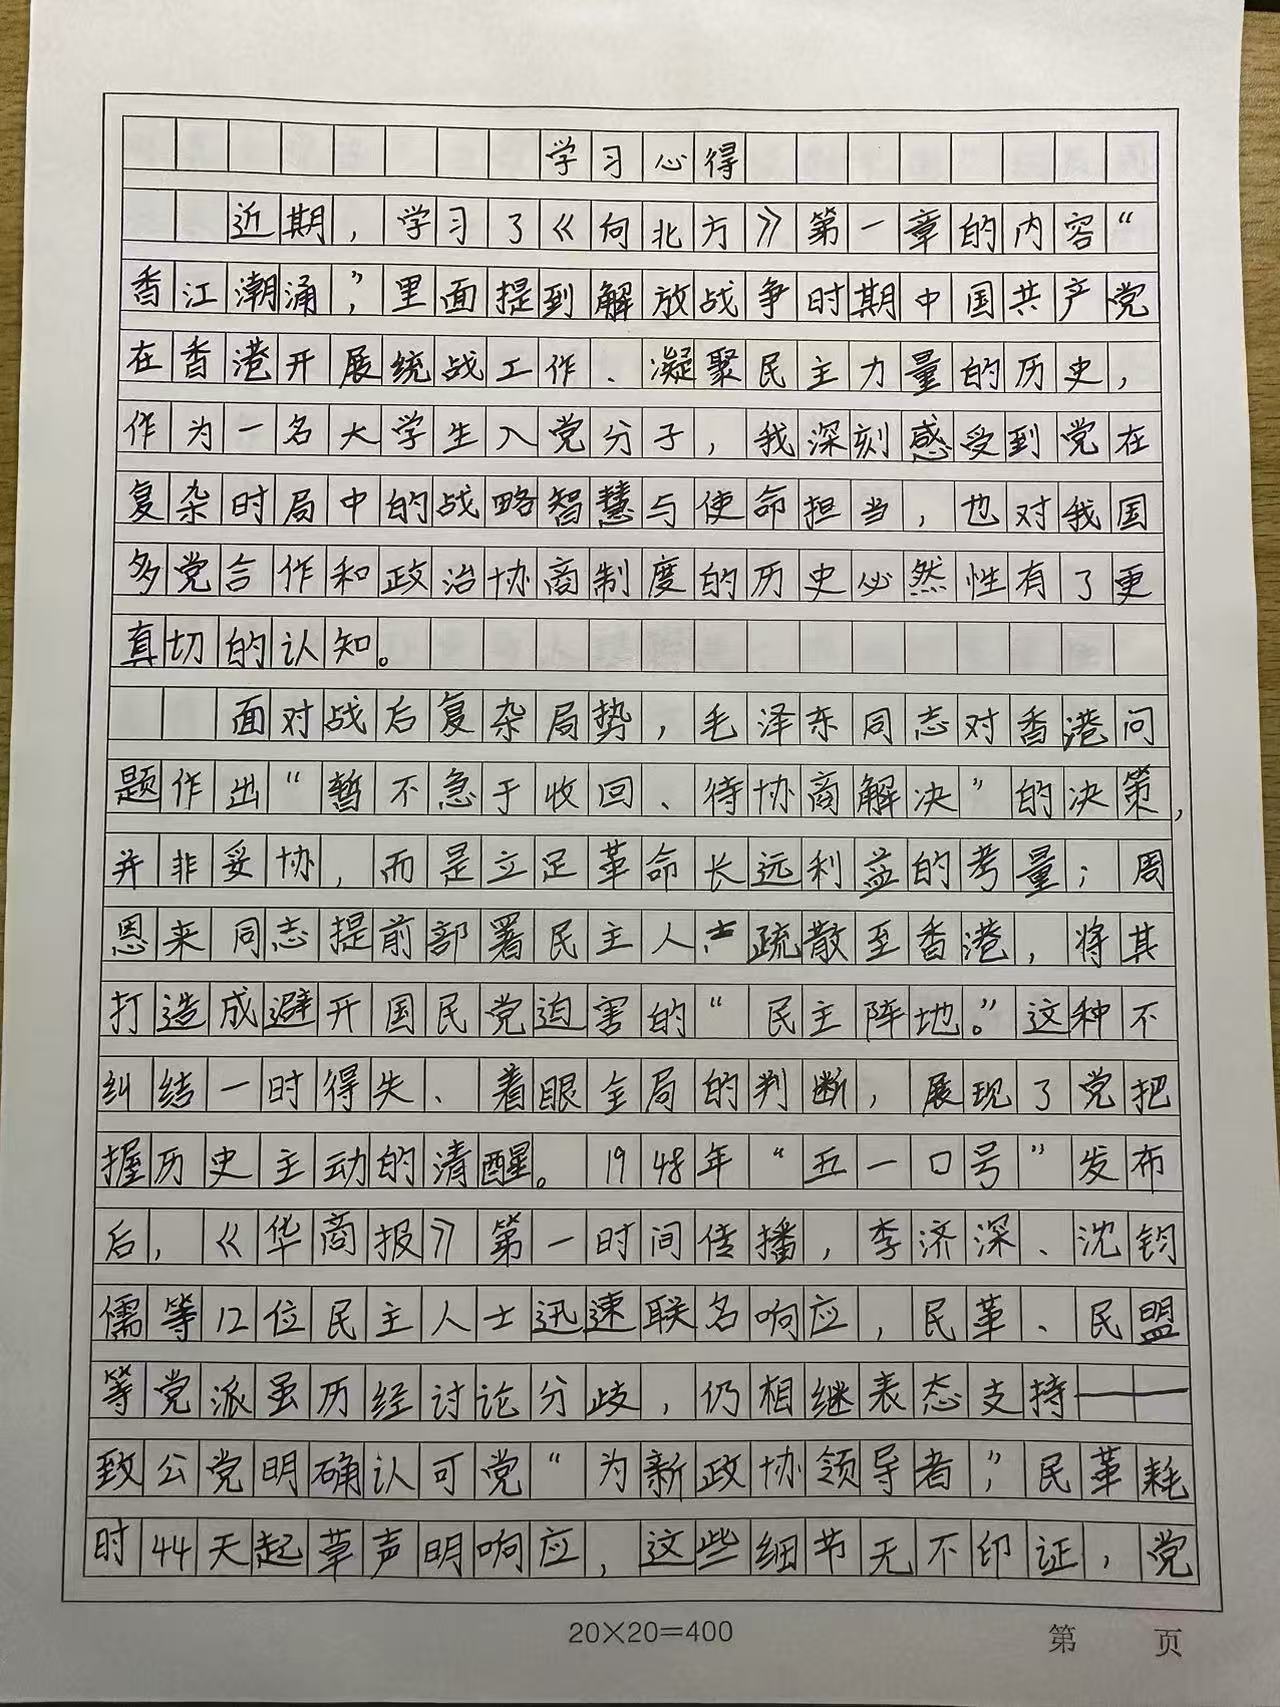 学习心得
近期，学习了《向北方》第一章的内容“
香江潮涌”，里面提到解放战争时期中国共产党
在香港开展统战工作、凝聚民主力量的历史，
作为一名大学生入党分子，我深刻感受到党在
复杂时局中的战略智慧与使命担当，也对我国
多党合作和政治协商制度的历史必然性有了更
真切的认知。
面对战后复杂局势，毛泽东同志对香港问
题作出“暂不急于收回、待协商解决”的决策，
并非妥协，而是立足革命长远利益的考量；周
恩来同志提前部署民主人士疏散至香港，将其
打造成避开国民党迫害的“民主阵地。”这种不
纠结一时得失、着眼全局的判断，展现了党把
握历史主动的清醒。1948年“五一口号”发布
后，《华商报》第一时间传播，李济深、沈钧
儒等12位民主人士迅速联名响应，民革、民盟
等党派虽历经讨论分歧，仍相继表态支持——
致公党明确认可党“为新政协领导者”，民革耗
时44天起草声明响应，这些细节无不印证，党
20×20=400
第 页